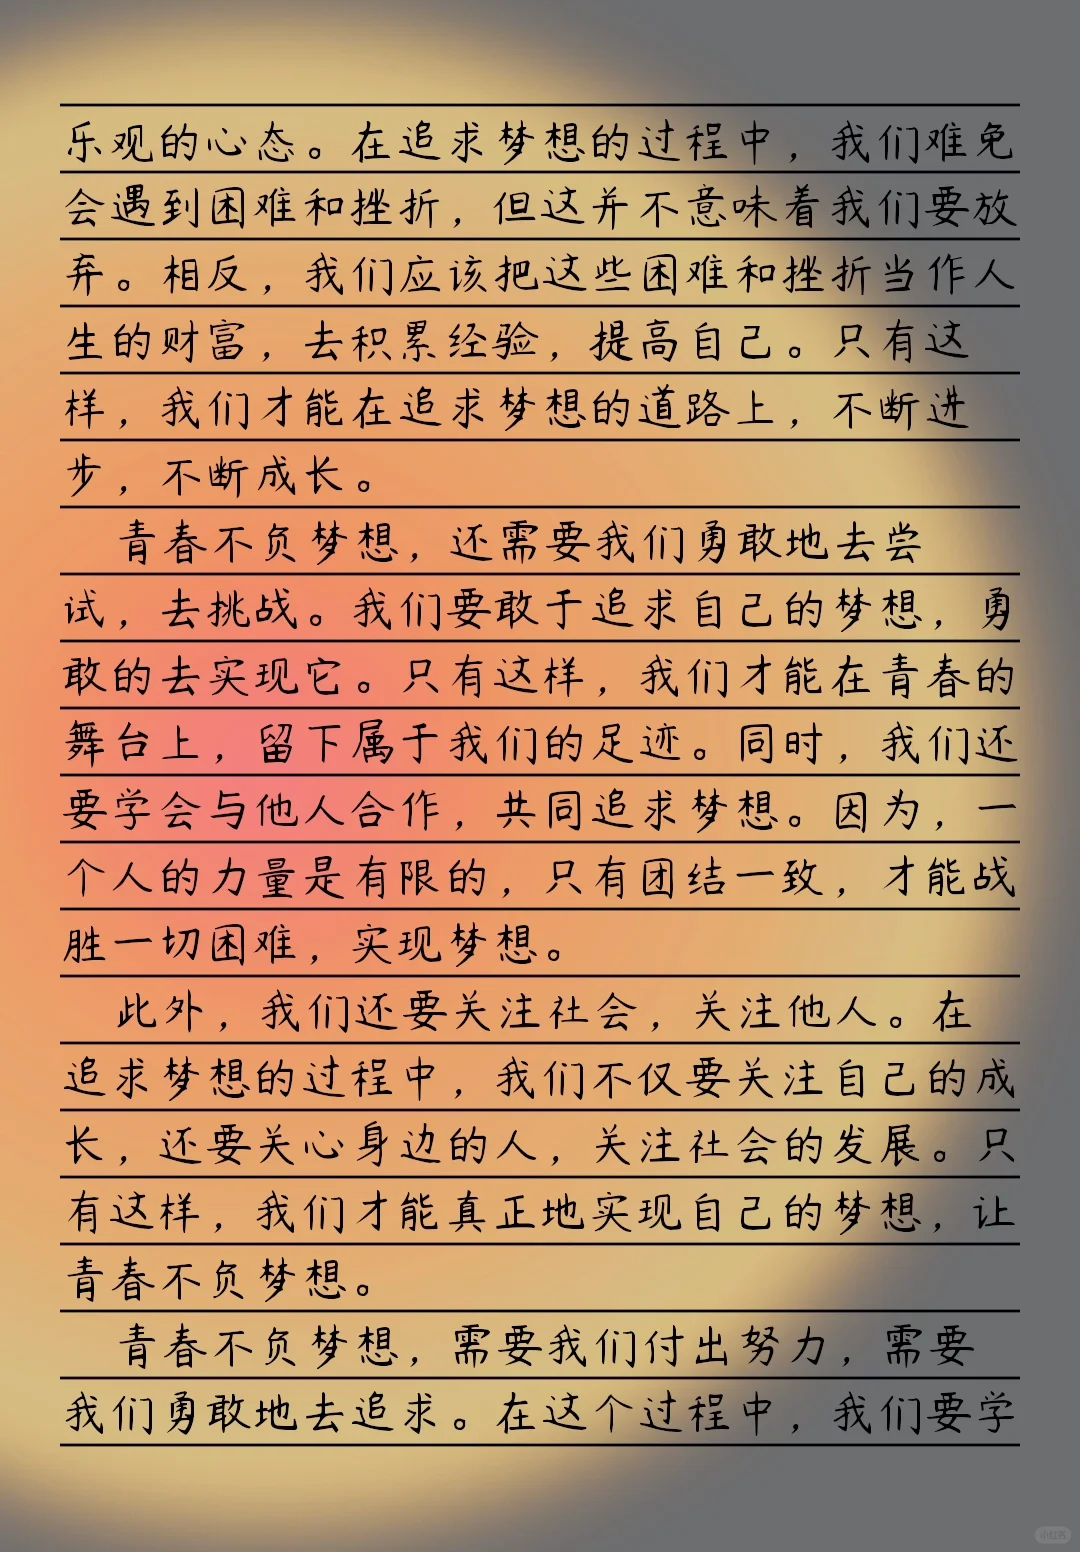 乐观的心态。在追求梦想的过程中，我们难免
会遇到困难和挫折，但这并不意味着我们要放
弃。相反，我们应该把这些困难和挫折当作人
生的财富，去积累经验，提高自己。只有这
样，我们才能在追求梦想的道路上，不断进
步，不断成长。
青春不负梦想，还需要我们勇敢地去尝
试，去挑战。我们要敢于追求自己的梦想，勇
敢的去实现它。只有这样，我们才能在青春的
舞台上，留下属于我们的足迹。同时，我们还
要学会与他人合作，共同追求梦想。因为，一
个人的力量是有限的，只有团结一致，才能战
胜一切困难，实现梦想。
此外，我们还要关注社会，关注他人。在
追求梦想的过程中，我们不仅要关注自己的成
长，还要关心身边的人，关注社会的发展。只
有这样，我们才能真正地实现自己的梦想，让
青春不负梦想。
青春不负梦想，需要我们付出努力，需要
我们勇敢地去追求。在这个过程中，我们要学
小红书